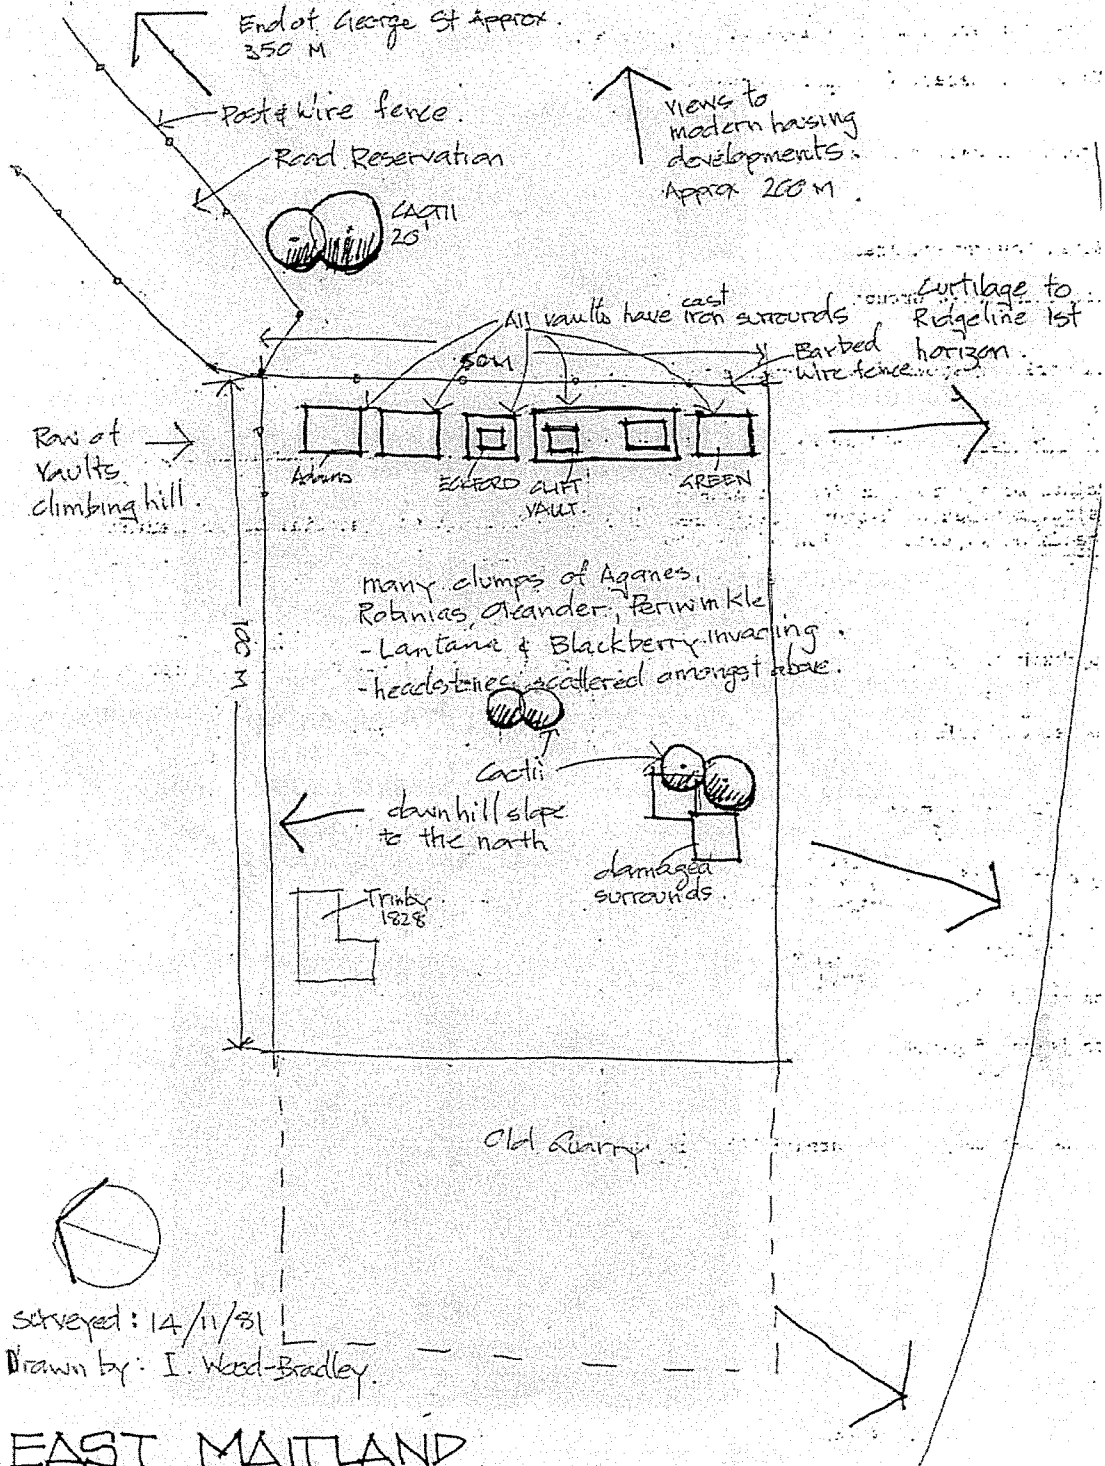 End of George St Approx.
350 M
Post & Wire fence.
Road Reservation
views to
modern housing
developments.
Approx 200 M.
CACTII
20'
All vaults have cast iron surrounds
Curtilage to
Ridgeline 1st
horizon.
50M
Barbed
wire fence
Row of
Vaults
climbing hill.
Adams
ECKFORD
CLIFT
VAULT.
GREEN
many clumps of Aganes,
Robinias, Oleander, Periwinkle
- Lantana & Blackberry invading.
- headstones scattered amongst above.
100 M
Cactii
downhill slope
to the north
damaged
surrounds.
1828
Old Quarry
surveyed: 14/11/81
Drawn by: I. Wood-Bradley.
EAST MAITLAND